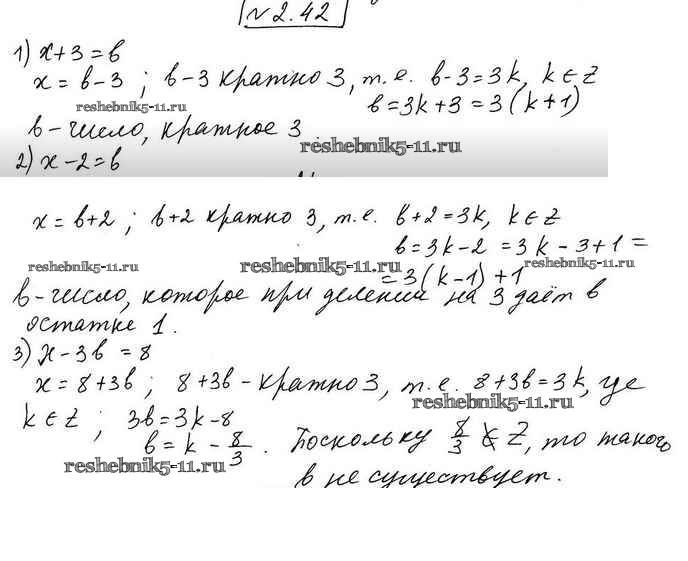 №2.42
1) x+3=b
x = b-3 ; b-3 кратно 3, т.е. b-3=3k, k∈Z
reshebnik5-11.ru b=3k+3=3(k+1)
b-число, кратное 3
reshebnik5-11.ru
2) x-2=b
x = b+2 ; b+2 кратно 3, т.е. b+2=3k, k∈Z
b=3k-2 = 3k-3+1=
reshebnik5-11.ru reshebnik5-11.ru reshebnik5-11.ru
=3(k-1)+1
b-число, которое при делении на 3 даёт в
остатке 1.
3) x-3b=8
x=8+3b ; 8+3b-кратно 3, т.е. 8+3b=3k, где
reshebnik5-11.ru
k∈Z ; 3b=3k-8
b=k-8/3. Поскольку 8/3 ∉ Z, то такого
reshebnik5-11.ru
b не существует.